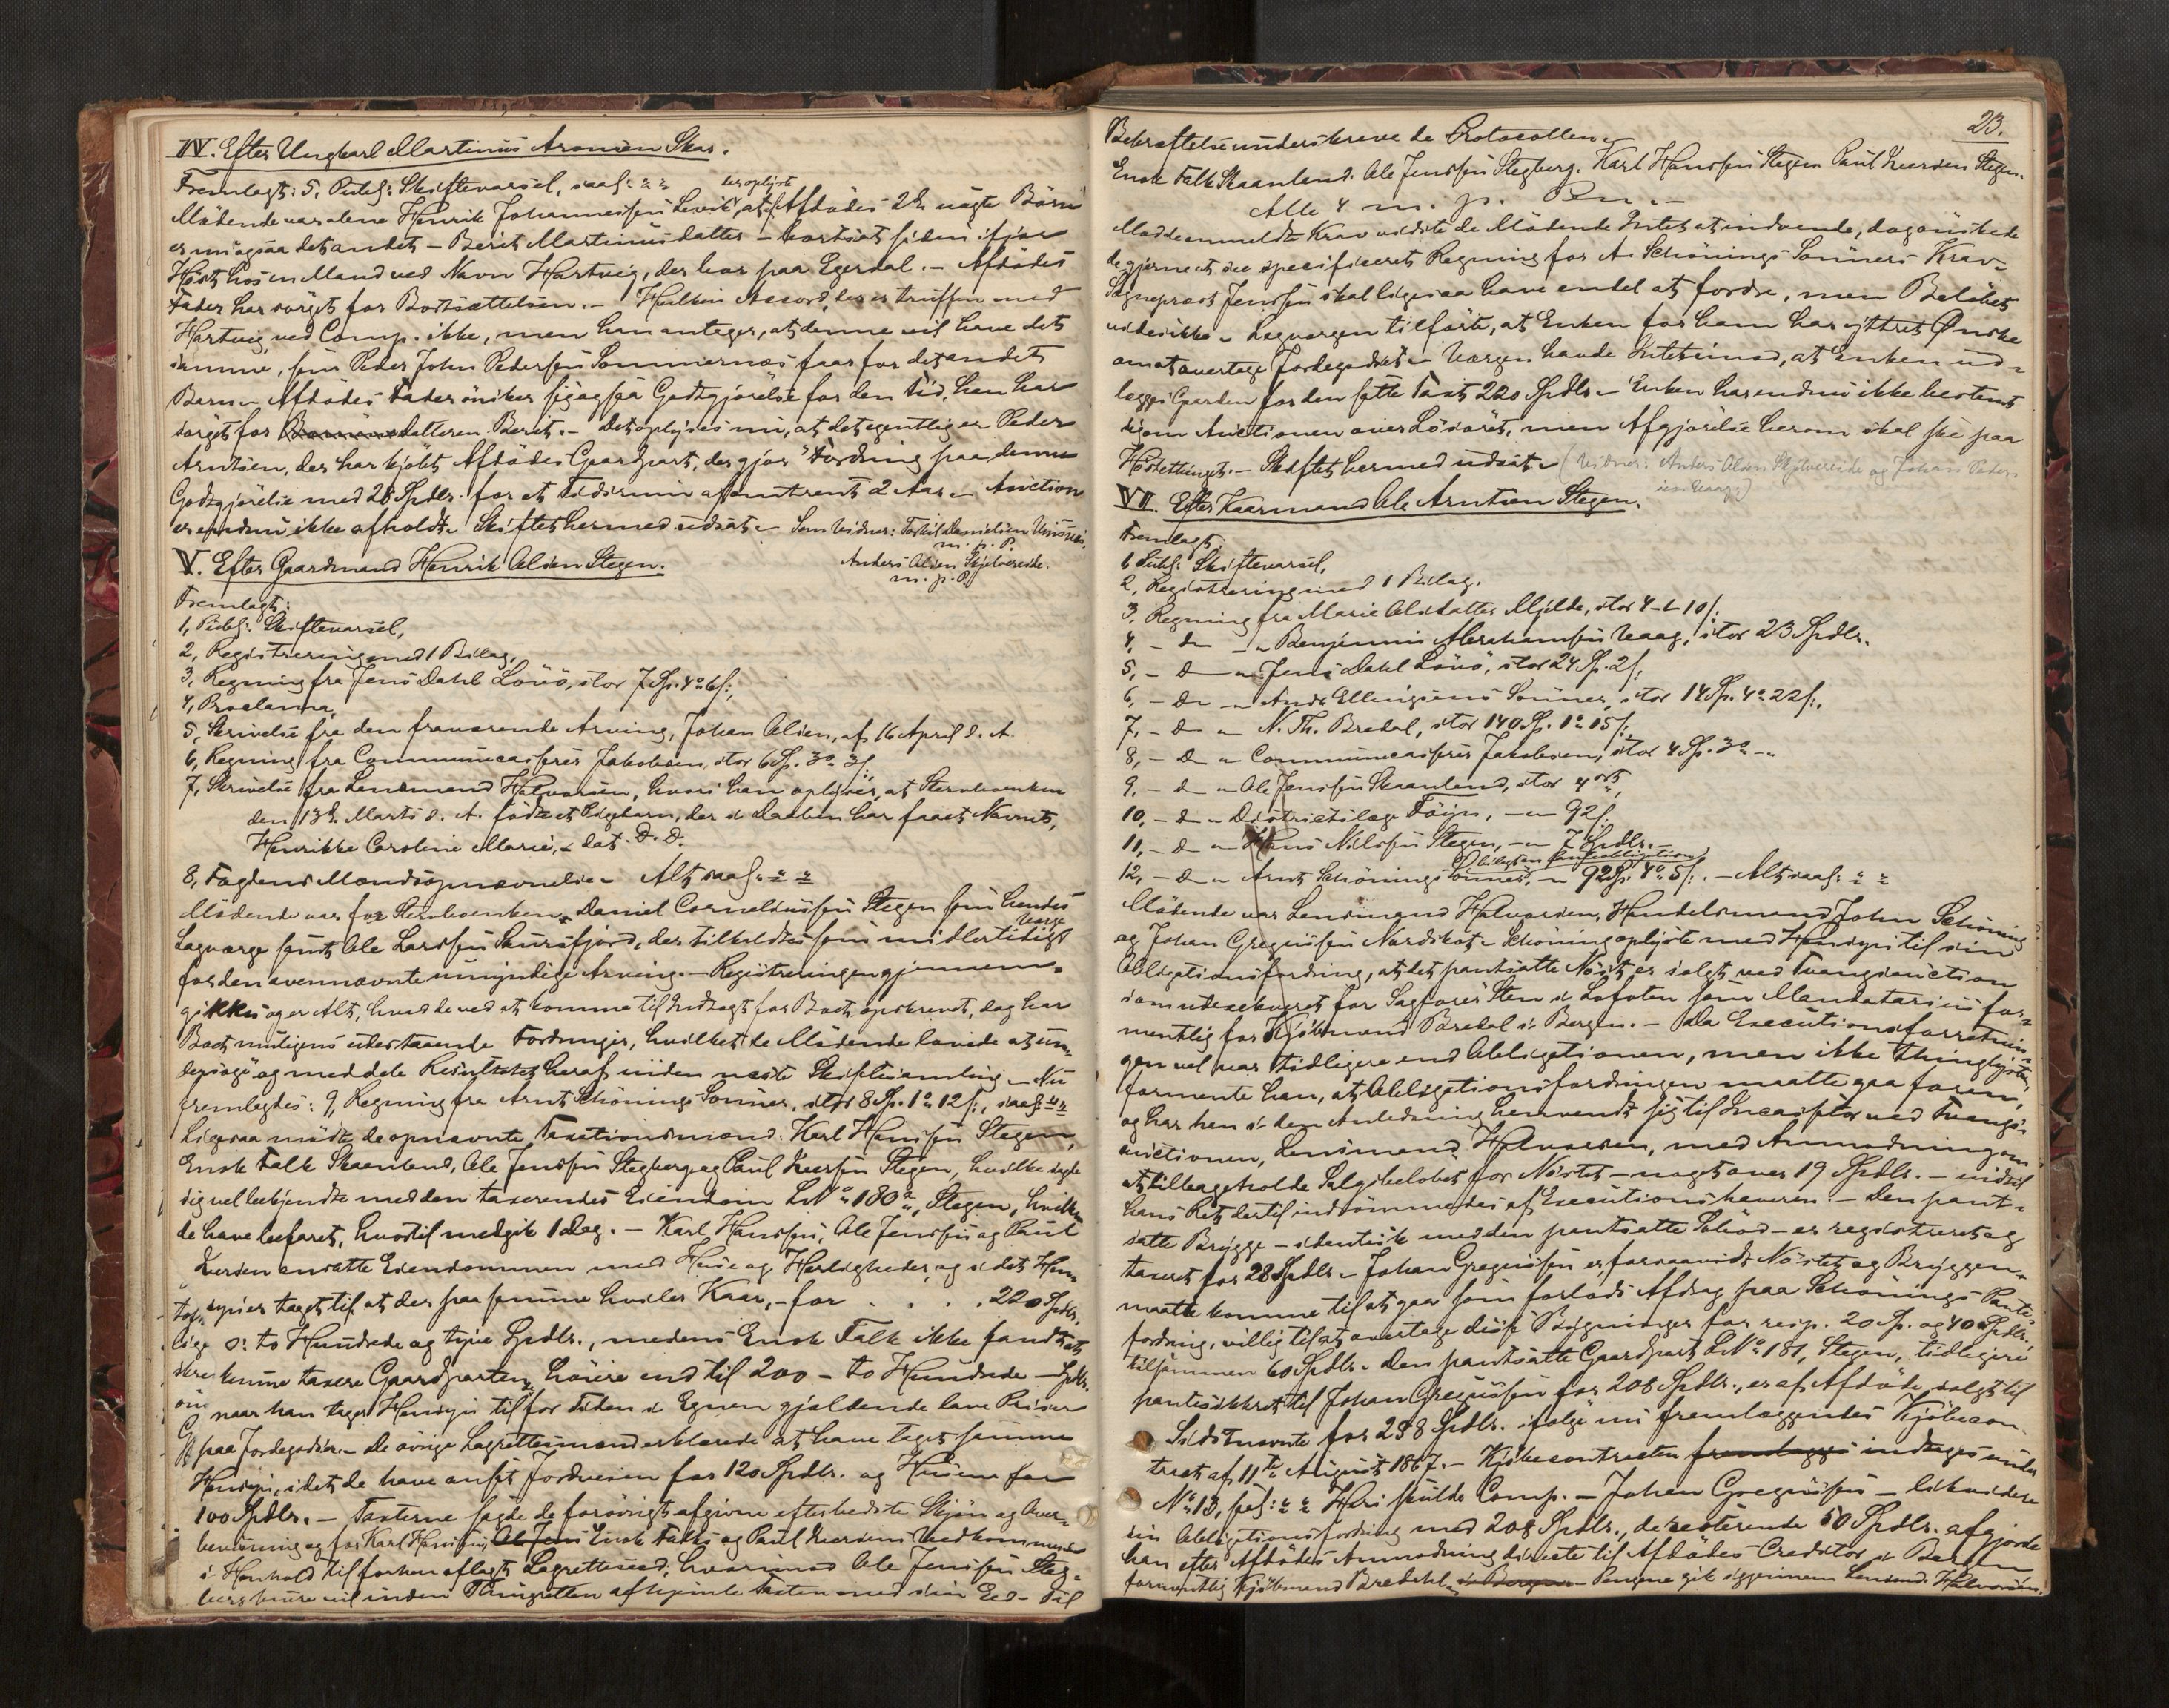 IV. Efter Ungkarl Martinus Aronsen Skar.
Fremlagt: 5, Publ: Skiftevarsel, saal: " "
der oplyste
Mødende var alene Henrik Johannessen Levik, at af Afdødes 2de uægte Børn
er nu ogsaa det andet – Berit Martinusdatter – bortsat siden ifjor
Høst hos en Mand ved Navn Hartvig, der bor paa Egerdal. – Afdødes
Fader har sørget for Bortsættelsen. – Hvilken Accord, der er truffen med
Hartvig, ved Comp. ikke, men han antager, at denne vil have det
samme, som Peder John Pedersen Sommernæs faar for det andet
Barn. – Afdødes Fader ønsker sig ogsaa Godtgjørelse for den Tid, han har
sørget for datteren Berit. – Det oplyses nu, at det egentlig er Peder
Arntsen, der har kjøbt Afdødes Gaardpart, der gjør Fordring paa denne
Godtgjørelse med 28 Spdlr. for et Tidsrum af omtrent 2 Aar. – Auction
er endnu ikke afholdt. Skiftet hermed udsat. – Som Vidner: Torkil Danielsen
m. p. P.
Anders Olsen Skjelvereide.
m. p. P.
V. Efter Gaardmand Henrik Olsen Stegen.
Fremlagt:
1, Publ: Skiftevarsel,
2, Registrering med 1 Bilag,
3, Regning fra Jens Dahl Lövö, stor 7 Sp. 4 o 6 s:,
4, Proclama,
5, Skrivelse fra den fraværende Arving, Johan Olsen, af 16 April d. A.
6, Regning fra Communecasserer Jakobsen, stor 6 Sp. 3 o 3 s:,
7, Skrivelse fra Lensmand Halvorsen, hvori han oplyser, at Stervboenken
den 13de Marts d. A. fødte et Pigebarn, der i Daaben har faaet Navnet,
Henrikke Caroline Marie, – dat. D. D.
8, Fogdens Mændsopnævnelse. – Alt saal: " "
Mødende var for Stervboenken Daniel Corneliussen Stegen som hendes
Laugværge samt Ole Larssen Skursfjord, der tilholdtes som midlertidigt Værge
for den ovennævnte umyndige Arving. – Registreringen gjennem-
gikkes og er Alt, hvad de ved at komme til Indtægt for Boet, opskrevet, dog har
Boet muligens udestaaende Fordringer, hvilket de Mødende lovede at un-
dersøge og meddele Resultatet heraf inden næste Skiftesamling. – Nu
fremlagdes: 9, Regning fra Arnt Schönings Sønner, stor 8 Sp. 1 o 12 s:, saal: " "
Ligesaa mødte de opnævnte Taxationsmænd: Karl Hanssen Stegen,
Enok Falk Skaanland, Ole Jenssen Stegberg og Paul Iversen Stegen, hvilke sagde
sig vel bekjendte med den taxerendes Eiendom L. No 180 a, Stegen, hvilken
de have befaret, hvortil medgik 1 Dag. – Karl Hanssen, Ole Jenssen og Paul
Iversen ansatte Eiendommen med Huse og Herligheder, og i det Hen-
syn er taget til at der paa samme hviler Kaar, – for . . . . 220 Spdlr.,
siger to Hundrede og tyve Spdlr., medens Enok Falk ikke fandt at
kunne taxere Gaardparten høiere end til 200 – to Hundrede – Spdlr.
naar han tager Hensyn til for Tiden i Egnen gjældende lave Priser
paa Jordegods. – De øvrige Lagrettesmænd erklærede at have taget samme
Hensyn, idet de have ansat Jordveien for 120 Spdlr. og Husene for
100 Spdlr. – Taxterne sagde de forøvrigt afgivne efter bedste Skjøn og Over-
bevisning og for Karl Hanssen, Enok Falks og Paul Iversens Vedkommende
i Henhold til forhen aflagt Lagretteseed, hvorimod Ole Jenssen Steg-
berg kunne vil inden Thingretten afhjemle Taxten med sin Eed. – Til
23.
Bekræftelse underskreve de Protocollen. –
Enok Falk Skaanland. Ole Jenssen Stegberg. Karl Hanssen Stegen Paul Iversen Stegen.
Alle 4 m. p. Pen. –
Mod de anmeldte Krav vidste de Mødende Intet at indvende, dog ønskede
de gjerne at see specificeret Regning for A. Schönings Sønners Krav. –
Sogneprest Jenssen skal ligesaa have endel at fordre, men Beløbet
vides ikke. – Laugværgen tilførte, at Enken for ham har yttret Ønske
om at overtage Jordegodset. – Værgen havde Intet imod, at Enken ud-
lægges Gaarden for den satte Taxt 220 Spdlr. – Enken har endnu ikke bestemt
sig om Auctionen over Løsøret, men Afgjørelse herom skal ske paa
Høstthinget. – Skiftet hermed udsat. – (Vidner: Anders Olsen Skjelvereide og Johan Peder-
sen Vaag.)
VI. Efter Kaarmand Ole Arntsen Stegen.
Fremlagt:
1, Publ: Skiftevarsel,
2, Registrering med 1 Bilag.
3, Regning fra Marie Olsdatter Mjelde, stor 4 – 1 – 10 s:
4, – do – " Benjamin Abrahamsen Vaag, stor 23 Spdlr.
5, – do " Jens Dahl Lövö, stor 24 Sp. 2 s:
6, – do – " Andr. Ellingsens Sønner, stor 14 Sp. 4 o 22 s:,
7, – do – " N. Th. Bredal, stor 140 Sp. 1 o 15 s:,
8, – do " Communecasserer Jakobsen, stor 4 Sp. 3 o – "
9, – do " Ole Jenssen Skaanland, stor 4 ort,
10, – do " Districtslæge Føyn, – " 92 s:
11, – do " Hans Nilssen Stegen, – " 7 Spdlr. –
12, – do " Arnt Schönings Sønner, – " 92 Sp. 4 o 5 s:. – Alt saal: " "
Mødende var Lensmand Halvorsen, Handelsmand John Schöning
og Johan Gregussen Nordskot. – Schöning oplyste med Hensyn til sin
Obligationsfordring, at det pantsatte Nøst er solgt ved Tvangsauction
som udexekveret for Sagfører Sten i Lofoten som Mandatarius for-
mentlig for Kjøbmand Bredal i Bergen. – Da Executionsforretnin-
gen vel var tidligere end Obligationen, men ikke thinglyst,
formente han, at Obligationsfordringen maatte gaa foran,
og har han i den Anledning henvendt sig til Incassator ved Tvangs-
auctionen, Lensmand Halvorsen, med Anmodning om
at tilbageholde Salgsbeløbet for Nøstet – noget over 19 Spdlr. – indtil
hans Ret dertil indrømmedes af Executionshaveren. – Den pant-
satte Brygge – identisk med den pantsatte Søbod – er registreret og
taxeret for 28 Spdlr. – Johan Gregussen er, forsaavidt Nøstet og Bryggen
maatte komme til at gaa som forlods Afdrag paa Schönings Pante-
fordring, villig til at overtage disse Bygninger for resp. 20 Sp. og 40 Spdlr.
tilsammen 60 Spdlr. – Den pantsatte Gaardpart L. No 181, Stegen, tidligere
pantsikkret til Johan Gregussen for 208 Spdlr., er af Afdøde solgt til
Sidstnævnte for 258 Spdlr. ifølge nu fremlæggendes Kjøbecon-
tract af 11te August 1867. – Kjøbecontracten fremlagges indtages under
No 13, saal: " " Heri skulde Comp. – Johan Gregussen – likvidere
sin Obligationsfordring med 208 Spdlr., de resterende 50 Spdlr. afgjorde
han efter Afdødes Anmodning directe til Afdødes Creditor i Bergen
formentlig Kjøbmand Bredahl – i Bergen – Pengene gik igjennem Lensmd. Halvorsen.